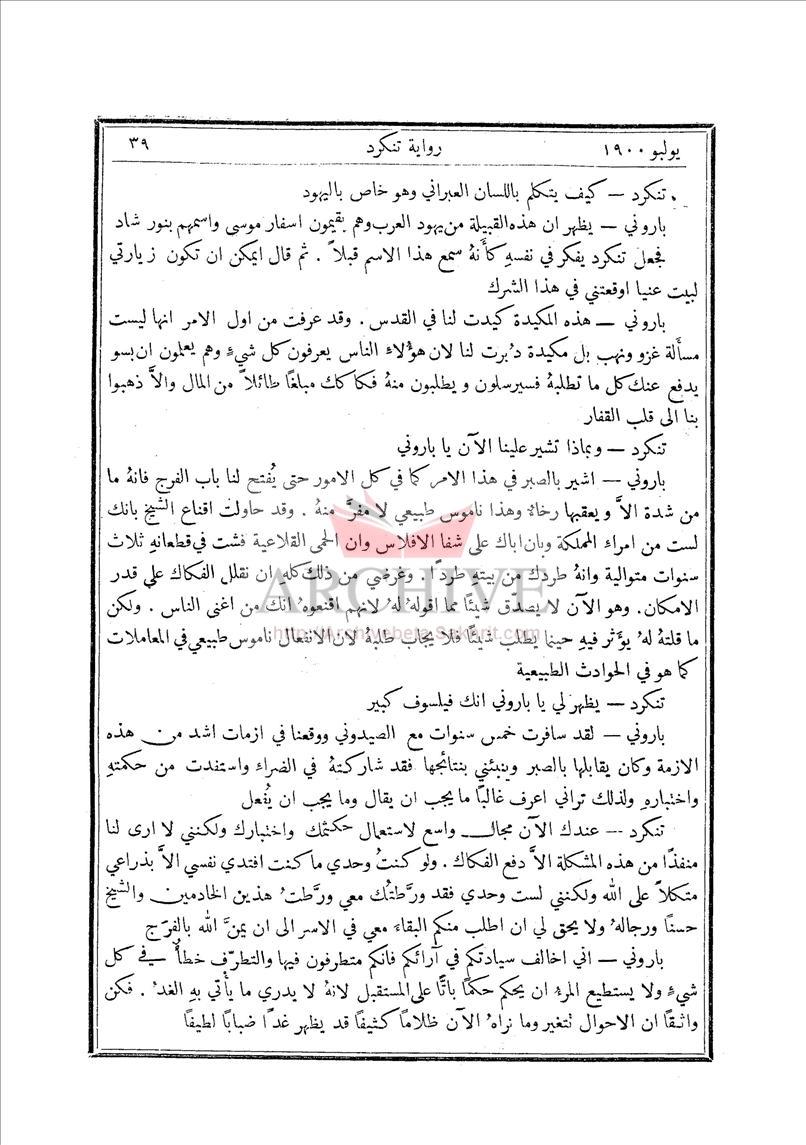 يوليو ١٩٠٠ رواية تنكرد ٣٩
تنكرد — كيف يتكلم باللسان العبراني وهو خاص باليهود
باروني — يظهر ان هذه القبيلة من يهود العرب وهم يقيمون اسفار موسى واسمهم بنور شاد
فجعل تنكرد يفكر في نفسهِ كأنهُ سمع هذا الاسم قبلاً . ثم قال ايمكن ان تكون زيارتي
لبيت عنيا اوقعتني في هذا الشرك
باروني — هذه المكيدة كيدت لنا في القدس . وقد عرفت من اول الامر انها ليست
مسألة غزو ونهب بل مكيدة دُبرت لنا لان هؤلاء الناس يعرفون كل شيءٍ وهم يعلمون ان بسو
يدفع عنك كل ما تطلبهُ فسيرسلون ويطلبون منهُ فكاكك مبلغًا طائلاً من المال والاَّ ذهبوا
بنا الى قلب القفار
تنكرد — وبماذا تشير علينا الآن يا باروني
باروني — اشير بالصبر في هذا الامر كما في كل الامور حتى يُفتح لنا باب الفرج فانهُ ما
من شدة الاَّ ويعقبها رخاءٌ وهذا ناموس طبيعي لا مفرَّ منهُ . وقد حاولت اقناع الشيخ بانك
لست من امراء المملكة وبان اباك على شفا الافلاس وان الحمى القلاعية فشت في قطعانهِ ثلاث
سنوات متوالية وانهُ طردك من بيتهِ طرداً . وغرضي من ذلك كلهِ ان نقلل الفكاك على قدر
ARCHIVE
الامكان . وهو الآن لا يصدّق شيئًا مما اقولهُ لهُ لانهم اقنعوهُ انك من اغنى الناس . ولكن
http://Archivebeta.Sakhrit.com
ما قلتهُ لهُ يؤَثر فيهِ حينما يطلب شيئًا فلا يجاب طلبهُ لان الانفعال ناموس طبيعي في المعاملات
كما هو في الحوادث الطبيعية
تنكرد — يظهر لي يا باروني انك فيلسوف كبير
باروني — لقد سافرت خمس سنوات مع الصيدوني ووقعنا في ازمات اشد من هذه
الازمة وكان يقابلها بالصبر وينبئني بنتائجها فقد شاركتهُ في الضراء واستفدت من حكمتهِ
واختبارهِ ولذلك تراني اعرف غالبًا ما يجب ان يقال وما يجب ان يُفعل
تنكرد — عندك الآن مجال واسع لاستعمال حكمتك واختبارك ولكنني لا ارى لنا
منفذًا من هذه المشكلة الاَّ دفع الفكاك . ولو كنتُ وحدي ما كنت افتدي نفسي الاَّ بذراعي
متكلاً على الله ولكنني لست وحدي فقد ورَّطتُك معي ورَّطتُ هذين الخادمين والشيخ
حسنًا ورجالهُ ولا يحق لي ان اطلب منكم البقاء معي في الاسر الى ان يمنَّ الله بالفرَج
باروني — اني اخالف سيادتكم في آرائكم فانكم متطرفون فيها والتطرّف خطأٌ في كل
شيءٍ ولا يستطيع المرءُ ان يحكم حكمًا باتًّا على المستقبل لانهُ لا يدري ما يأتي بهِ الغدُ . فكن
واثقًا ان الاحوال نتغير وما نراهُ الآن ظلامًا كثيفًا قد يظهر غدًا ضبابًا لطيفًا